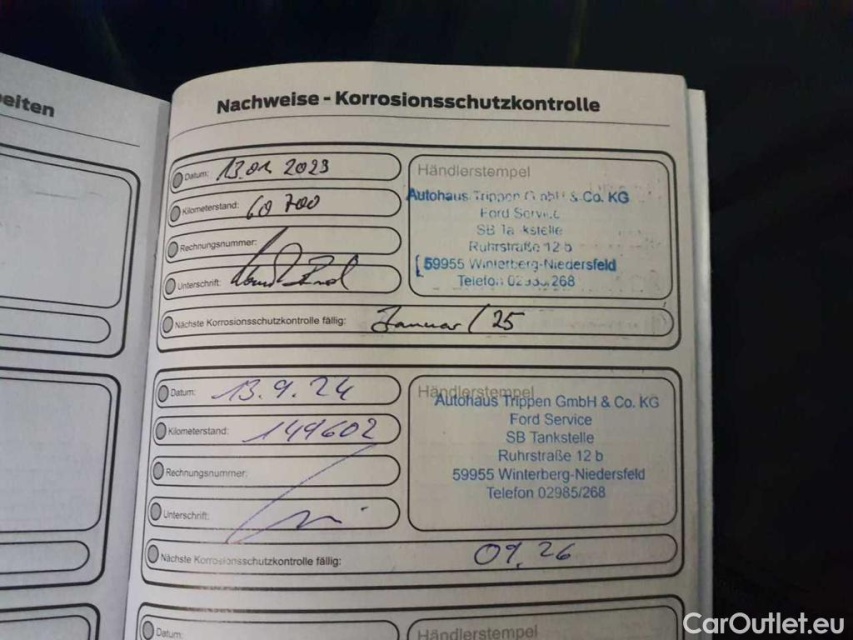 eiten
Nachweise - Korrosionsschutzkontrolle
Datum: 13.01 2023
Kilometerstand: 60 700
Rechnungsnummer:
Unterschrift:
Nächste Korrosionsschutzkontrolle fällig: Januar / 25
Händlerstempel
Autohaus Trippen GmbH & Co. KG
Ford Service
SB Tankstelle
Ruhrstraße 12 b
59955 Winterberg-Niedersfeld
Telefon 02985/268
Datum: 13.9.24
Kilometerstand: 149602
Rechnungsnummer:
Unterschrift:
Nächste Korrosionsschutzkontrolle fällig: 09.26
Händlerstempel
Autohaus Trippen GmbH & Co. KG
Ford Service
SB Tankstelle
Ruhrstraße 12 b
59955 Winterberg-Niedersfeld
Telefon 02985/268
Datum:
Händlerstempel
CarOutlet.eu